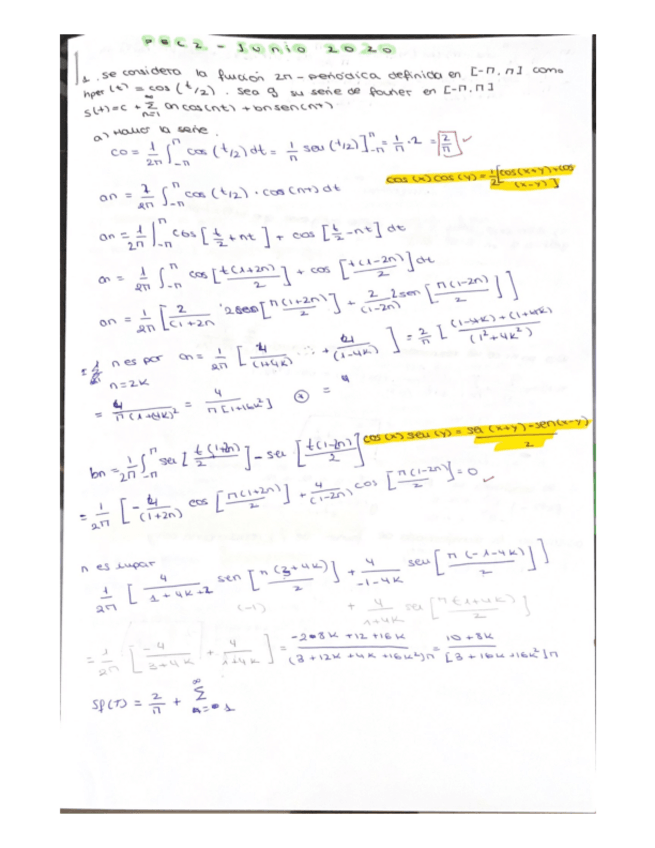 PEC 2 - JUNIO 2020
1. se considera la función 2π-periódica definida en [-π, π] como
hper(t) = cos(t/2). Sea g su serie de fourier en [-π, π]
S(t) = c + Σ an cos(nt) + bn sen(nt)
a) Hallar la serie.
co = 1/2π ∫ cos(t/2) dt = 1/π sen(t/2)] = 1/π · 2 = 2/π ✓
cos(x) cos(y) = 1/2 [cos(x+y) + cos(x-y)]
an = 2/2π ∫ cos(t/2) · cos(nt) dt
an = 1/2π ∫ cos[t/2 + nt] + cos[t/2 - nt] dt
an = 1/2π ∫ cos[t(1+2n)/2] + cos[t(1-2n)/2] dt
an = 1/2π [2/(1+2n) · 2 sen[π(1+2n)/2] + 2/(1-2n) 2 sen[π(1-2n)/2]]
n es par an = 1/2π [4/(1+4k) + 4/(1-4k)] = 2/π [(1-4k)+(1+4k)/(1²+4k²)]
n=2k
= 4/π(1+4k)² = 4/π[1+16k²]
cos(x) sen(y) = sen(x+y) - sen(x-y)/2
bn = 1/2π ∫ sen[t(1+2n)/2] - sen[t(1-2n)/2]
= 1/2π [-4/(1+2n) cos[π(1+2n)/2] + 4/(1-2n) cos[π(1-2n)/2] = 0 ✓
n es impar
1/2π [4/1+4k+2 sen[π(3+4k)/2] + 4/-1-4k sen[π(-1-4k)/2]]
(-1) + 4/1+4k sen[π(1+4k)/2]
= 1/2π [-4/3+4k + 4/1+4k] = -2·8k+12+16k/(3+12k+4k+16k²)π = 10+8k/[3+16k+16k²]π
Sf(T) = 2/π + Σ